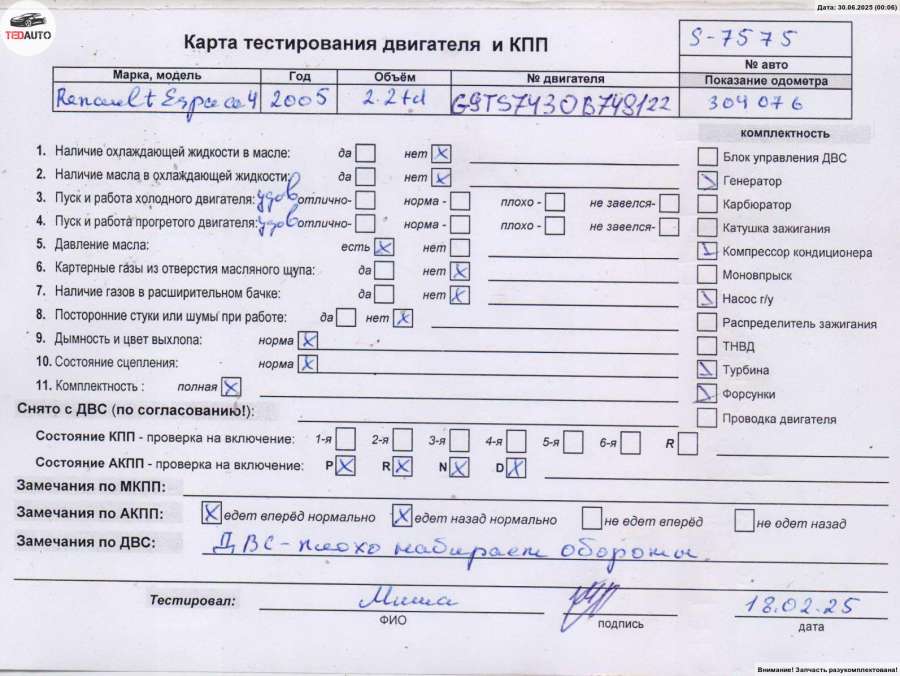 Дата: 30.06.2025 (00:06)
TEDAUTO
Карта тестирования двигателя и КПП
S-7575
№ авто
Марка, модель Год Объём № двигателя Показание одометра
Renault Espace 4 2005 2.2td G9T S743 0B748122 304 076
комплектность
1. Наличие охлаждающей жидкости в масле: да нет X
Блок управления ДВС
2. Наличие масла в охлаждающей жидкости: да нет X
Генератор
3. Пуск и работа холодного двигателя: удов отлично- норма - плохо - не завелся-
Карбюратор
4. Пуск и работа прогретого двигателя: удов отлично- норма - плохо - не завелся-
Катушка зажигания
5. Давление масла: есть X нет
Компрессор кондиционера
6. Картерные газы из отверстия масляного щупа: да нет X
Моновпрыск
7. Наличие газов в расширительном бачке: да нет X
Насос г/у
8. Посторонние стуки или шумы при работе: да нет X
Распределитель зажигания
9. Дымность и цвет выхлопа: норма X
ТНВД
10. Состояние сцепления: норма X
Турбина
11. Комплектность : полная X
Форсунки
Снято с ДВС (по согласованию!):
Проводка двигателя
Состояние КПП - проверка на включение: 1-я 2-я 3-я 4-я 5-я 6-я R
Состояние АКПП - проверка на включение: P X R X N X D X
Замечания по МКПП:
Замечания по АКПП: X едет вперёд нормально X едет назад нормально не едет вперёд не едет назад
Замечания по ДВС: ДВС - плохо набирает обороты.
Тестировал: Миша 18.02.25
ФИО подпись дата
Внимание! Запчасть разукомплектована!